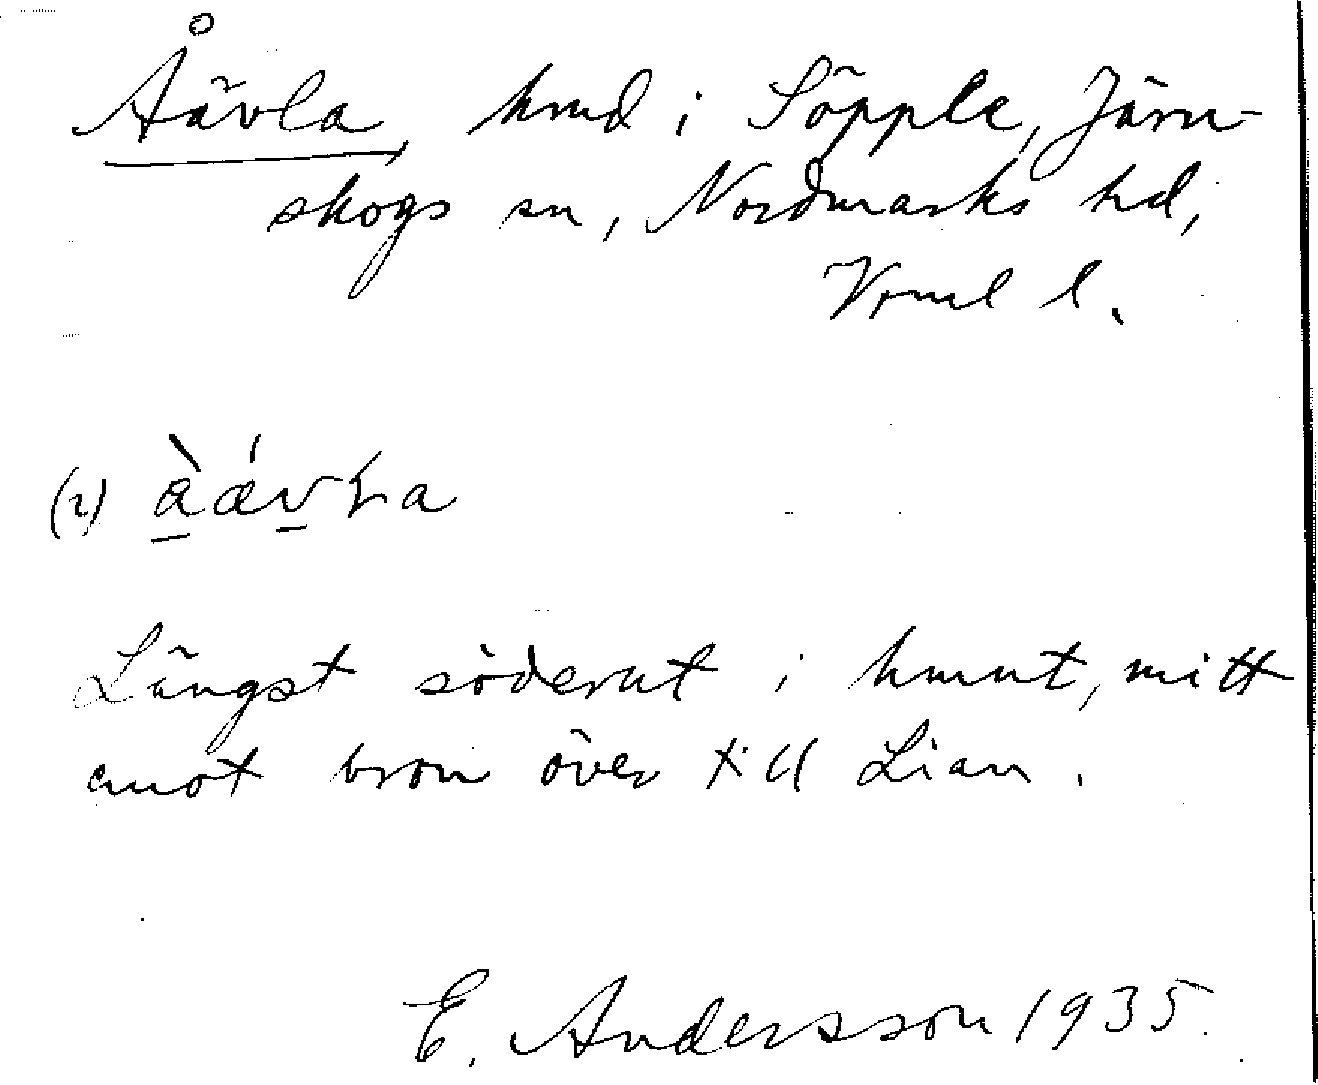 Åävla, hmd i Söpple, Järn-
skogs sn, Nordmarks hd,
Vrml l.
(2) à̱ǽv̱ła
Längst söderut i hmnt, mitt
emot bron över till Lian.
E. Andersson 1935.